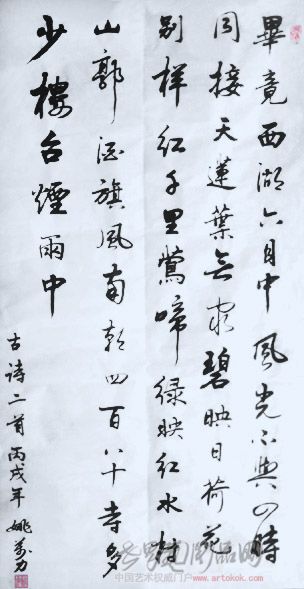 畢竟西湖六月中風光不與四時
同接天蓮葉無窮碧映日荷花
别樣红千里鶯啼绿映红水村
山郭酒旗風南朝四百八十寺多
少樓台煙雨中
古诗二首丙戌年姚萬力
中国艺术权威门户 www.artokok.com